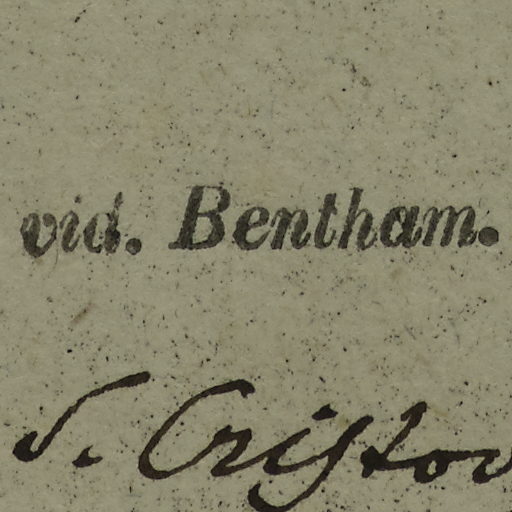 vid. Bentham.
S. Cristov